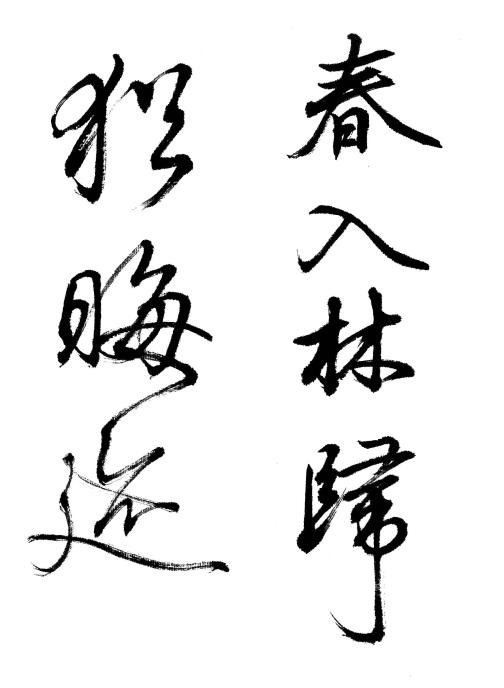 春入林歸
猶晦迹